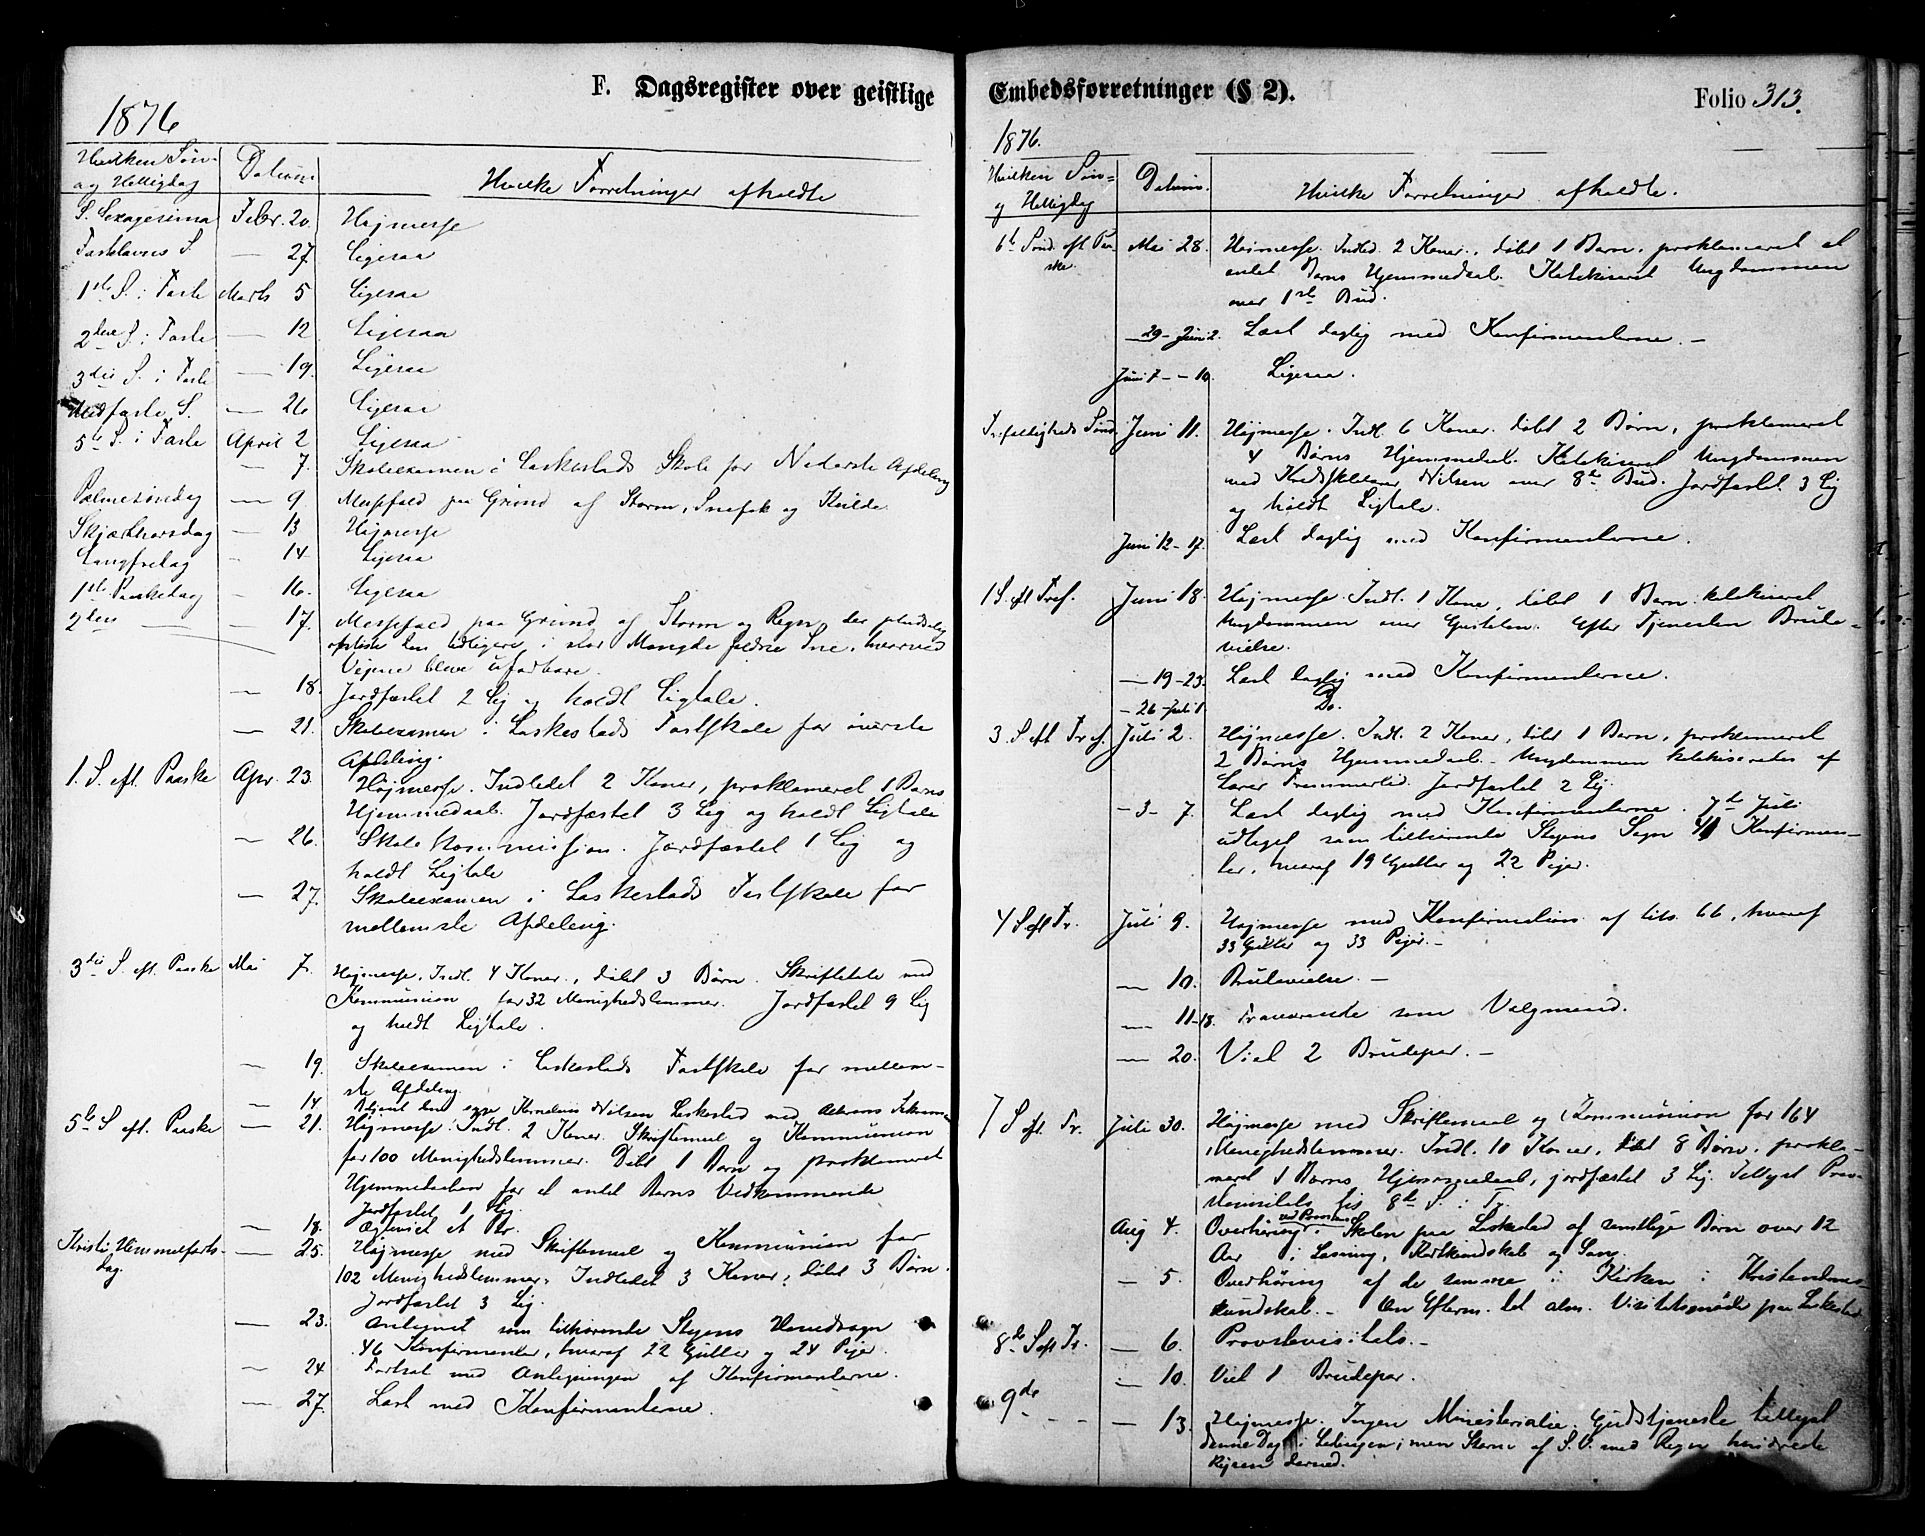 F. Dagsregister over geistlige
1876
Hvilken Søn-
og Helligdag
Datum
Hvilke Forretninger afholdte
S. Sexagesima Febr. 20. Højmesse
Fastelavns S. — 27. Ligesaa
1ste S. i Faste Marts 5 Ligesaa
2den S. i Faste — 12 Ligesaa
3die S. i Faste — 19. Ligesaa
Midfaste S. — 26 Ligesaa
5te S. i Faste April 2 Ligesaa
— 7. Skoleexamen i Laskestads Skole for Nederste Afdeling
Palmesøndag — 9 Messefald paa Grund af Storm, Snefok og Kulde
Skjærthorsdag — 13 Højmesse
Langfredag — 14 Ligesaa
1ste Paaskedag — 16. Ligesaa
2den — — 17. Messefald paa Grund af Storm og Regn, der pludselig
opløste den tidligere i stor Mængde faldne Sne, hvorved
Vejene bleve ufarbare.
— 18. Jordfæstet 2 Lig og holdt Ligtale.
— 21. Skoleexamen i Laskestads Fastskole for øverste
Afdeling.
1. S. eft. Paaske Apr. 23. Højmesse. Indledet 2 Koner, proklameret 1 Barns
Hjemmedaab. Jordfæstet 3 Lig og holdt Ligtale
— 26. Skolekommission. Jordfæstet 1 Lig og
holdt Ligtale
— 27. Skoleexamen i Laskestads Fastskole for
mellemste Afdeling.
3die S. eft. Paaske Mai 7. Højmesse. Indl. 4 Koner, døbt 3 Børn. Skriftetale med
Kommunion for 32 Menighedslemmer. Jordfæstet 9 Lig
og holdt Ligtale.
— 19. Skoleexamen i Laskestads Fastskole for mellem-
ste Afdeling.
— 14 Betjent den syge Kornelius Nilsen Laskestad med Alterens Sakram.
5te S. eft. Paaske — 21. Højmesse. Indl. 2 Koner. Skriftemaal og Kommunion
for 100 Menighedslemmer. Døbt 1 Barn og proklameret
Hjemmedaaben for et andet Barns Vedkommende
Jordfæstet 1 Lig.
— 18. Ægteviet et Par.
Kristi Himmelfarts-
dag. — 25. Højmesse med Skriftemaal og Kommunion for
102 Menighedslemmer, Indledet 3 Koner, døbt 3 Børn.
Jordfæstet 3 Lig.
— 23. Antegnet som tilhørende Stegens Hovedsogn
46 Konfirmanter, hvoraf 22 Gutter og 24 Piger.
— 24 Fortsat med Antegningen af Konfirmanterne.
— 27. Læst med Konfirmanterne.
Embedsforretninger (§ 2).
Folio 313.
1876.
Hvilken Søn-
og Helligdag
Datum.
Hvilke Forretninger afholdte.
6te Sønd. eft. Paa-
ske. Mai 28. Højmesse. Indled. 2 Koner, døbt 1 Barn, proklameret et
andet Barns Hjemmedaab. Katekiseret Ungdommen
over 1ste Bud.
— 29 – Juni 2. Læst daglig med Konfirmanterne. —
Juni 7 – – 10. Ligesaa.
Trefoldigheds Sønd. Juni 11. Højmesse. Indl. 6 Koner, døbt 2 Børn, proklameret
4 Børns Hjemmedaab. Katekiseret Ungdommen
med Kredsskolelærer Nilsen over 8de Bud. Jordfæstet 3 Lig
og holdt Ligtale.
Juni 12 – 17. Læst daglig med Konfirmanterne.
1 S. eft. Tref. Juni 18. Højmesse. Indl. 1 Kone, døbt 1 Barn. katekiseret
Ungdommen over Epistelen. Efter Tjenesten Brude-
vielse.
— 19 – 23. Læst daglig med Konfirmanterne.
— 26 – Juli 1 Do.
3. S. eft. Tref. Juli 2. Højmesse. Indl. 2 Koner, døbt 1 Barn, proklameret
2 Børns Hjemmedaab. Ungdommen katekiseredes af
Lærer Trommerlid. Jordfæstet 2 Lig.
— 3 – 7. Læst daglig med Konfirmanterne. 7de Juli
udtaget som tilhørende Stegens Sogn 41 Konfirman-
ter, hvoraf 19 Gutter og 22 Piger.
4 S. eft. Tr. Juli 9. Højmesse med Konfirmation af tils. 66, hvoraf
33 Gutter og 33 Piger. —
— 10. Brudevielse. —
— 11 – 18. Fraværende som Valgmand.
— 20. Viet 2 Brudepar. —
7 S. eft. Tr. Juli 30. Højmesse med Skriftemaal og Kommunion for 164
Menighedslemmer. Indl. 10 Koner, døbt 8 Børn, prokla-
meret 1 Barns Hjemmedaab, jordfæstet 3 Lig. Tillyst Prov-
stevisitats fis 8de S. i Tr.
Aug 4. Overhøring ved Provsten i Skolen paa Laskestad af samtlige Børn over 12
Aar i Læsning, Katkundskab og Sang.
— 5. Overhøring af de samme i Kirken i Kristendoms-
kundskab. — Om Efterm. led alm. Visitatsmøde paa Laskestad
8de S. eft. Tr. — 6. Provstevisitats. —
— 10. Viet 1 Brudepar.
9de — — 13. Højmesse. Ingen Ministerialia. Gudstjeneste tillyst
denne Dag i Ledingen; men Storm af S.V. med Regn hindrede
Rejsen derned.